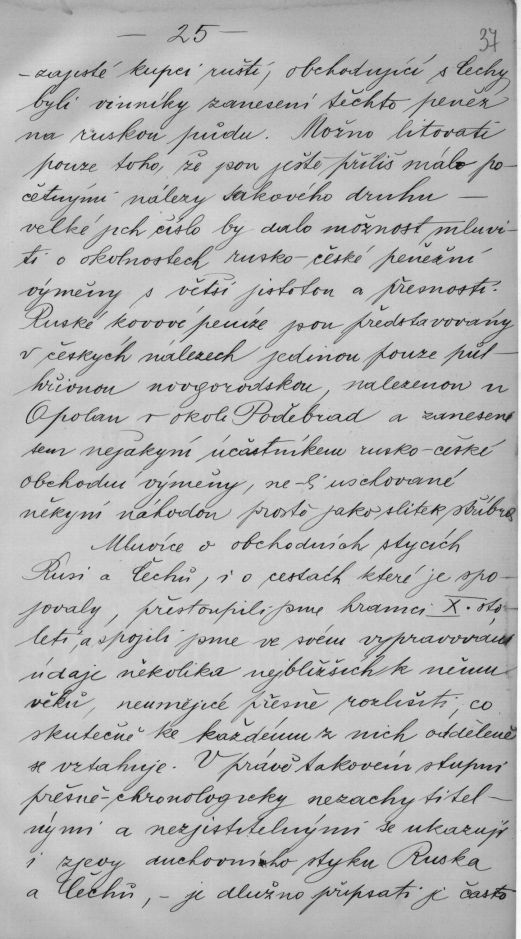 — 25 —
37
-zajisté kupci ruští, obchodující s Čechy
byli vinníky zanesení těchto peněz
na ruskou půdu. Možno litovati
pouze toho, že jsou ještě příliš málo po-
četnými nálezy takového druhu —
velké jich číslo by dalo možnost mluvi-
ti o okolnostech rusko-české peněžní
výměny s větší jistotou a přesností.
Ruské kovové peníze jsou představovány
v českých nálezech jedinou pouze půl-
hřivnou novgorodskou, nalezenou u
Opolan v okolí Poděbrad a zanesené
sem nějakým účastníkem rusko-české
obchodní výměny, ne-li uschované
někým náhodou prostě jako slitek stříbra
Mluvíce o obchodních stycích
Rusi a Čechů, i o cestách které je spo-
jovaly, přestoupili jsme hranici X. sto-
letí, a spojili jsme ve svém vypravování
údaje několika nejbližších k němu
věků, neumějíce přesně rozlišiti, co
skutečně ke každému z nich odděleně
se vztahuje. V právě takovém stupni
přesně-chronologicky nezachytitel-
nými a nezjistitelnými se ukazují
i zjevy duchovního styku Ruska
a Čechů, - je dlužno připsati je často